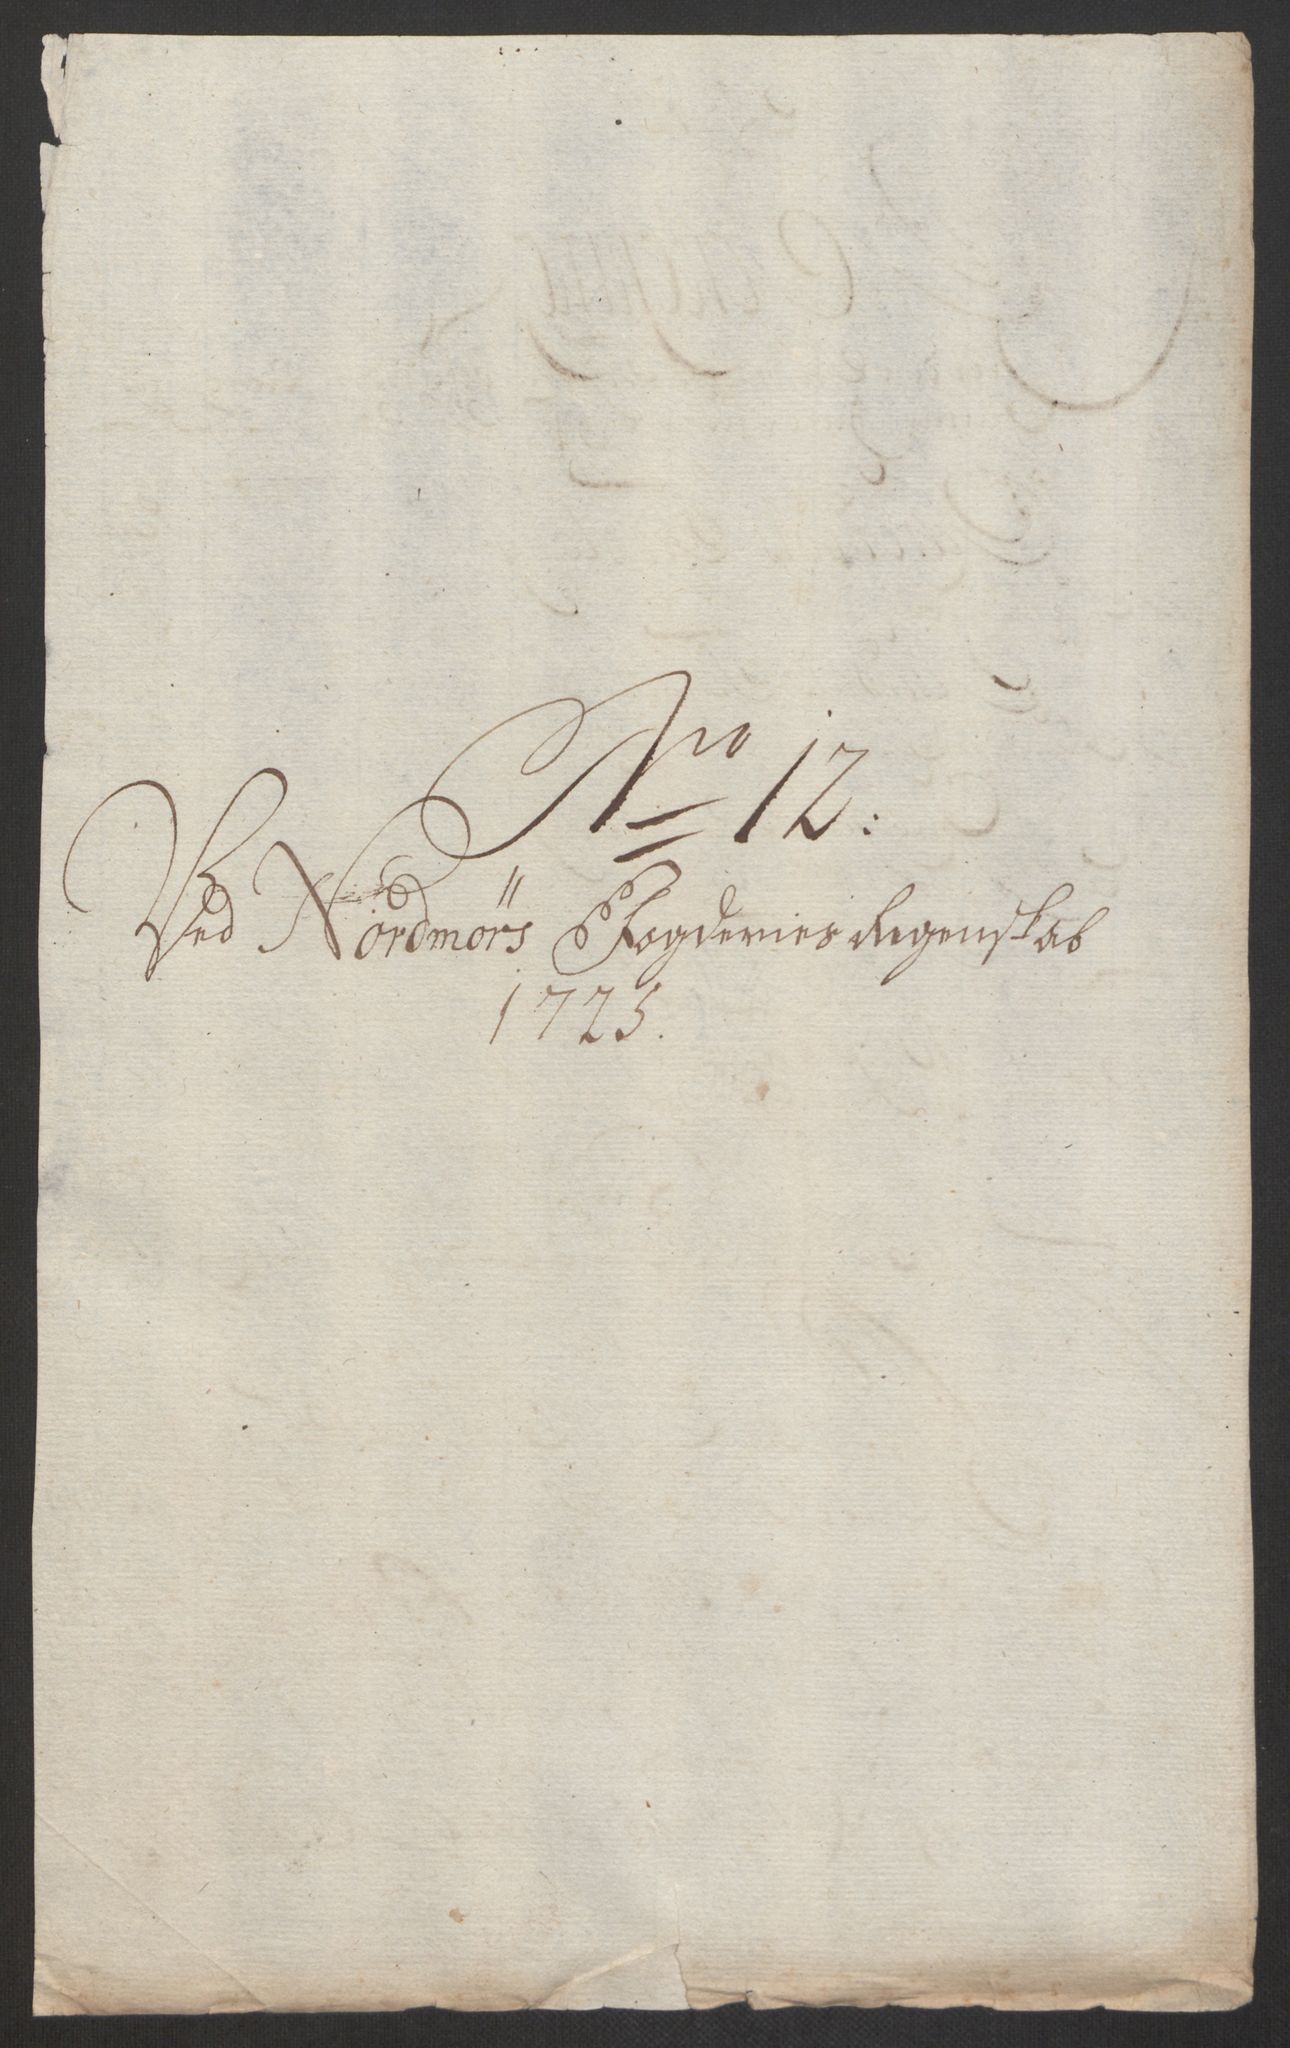 No 12:
Ved Nordmörs Fogderies Regenskab
1725.